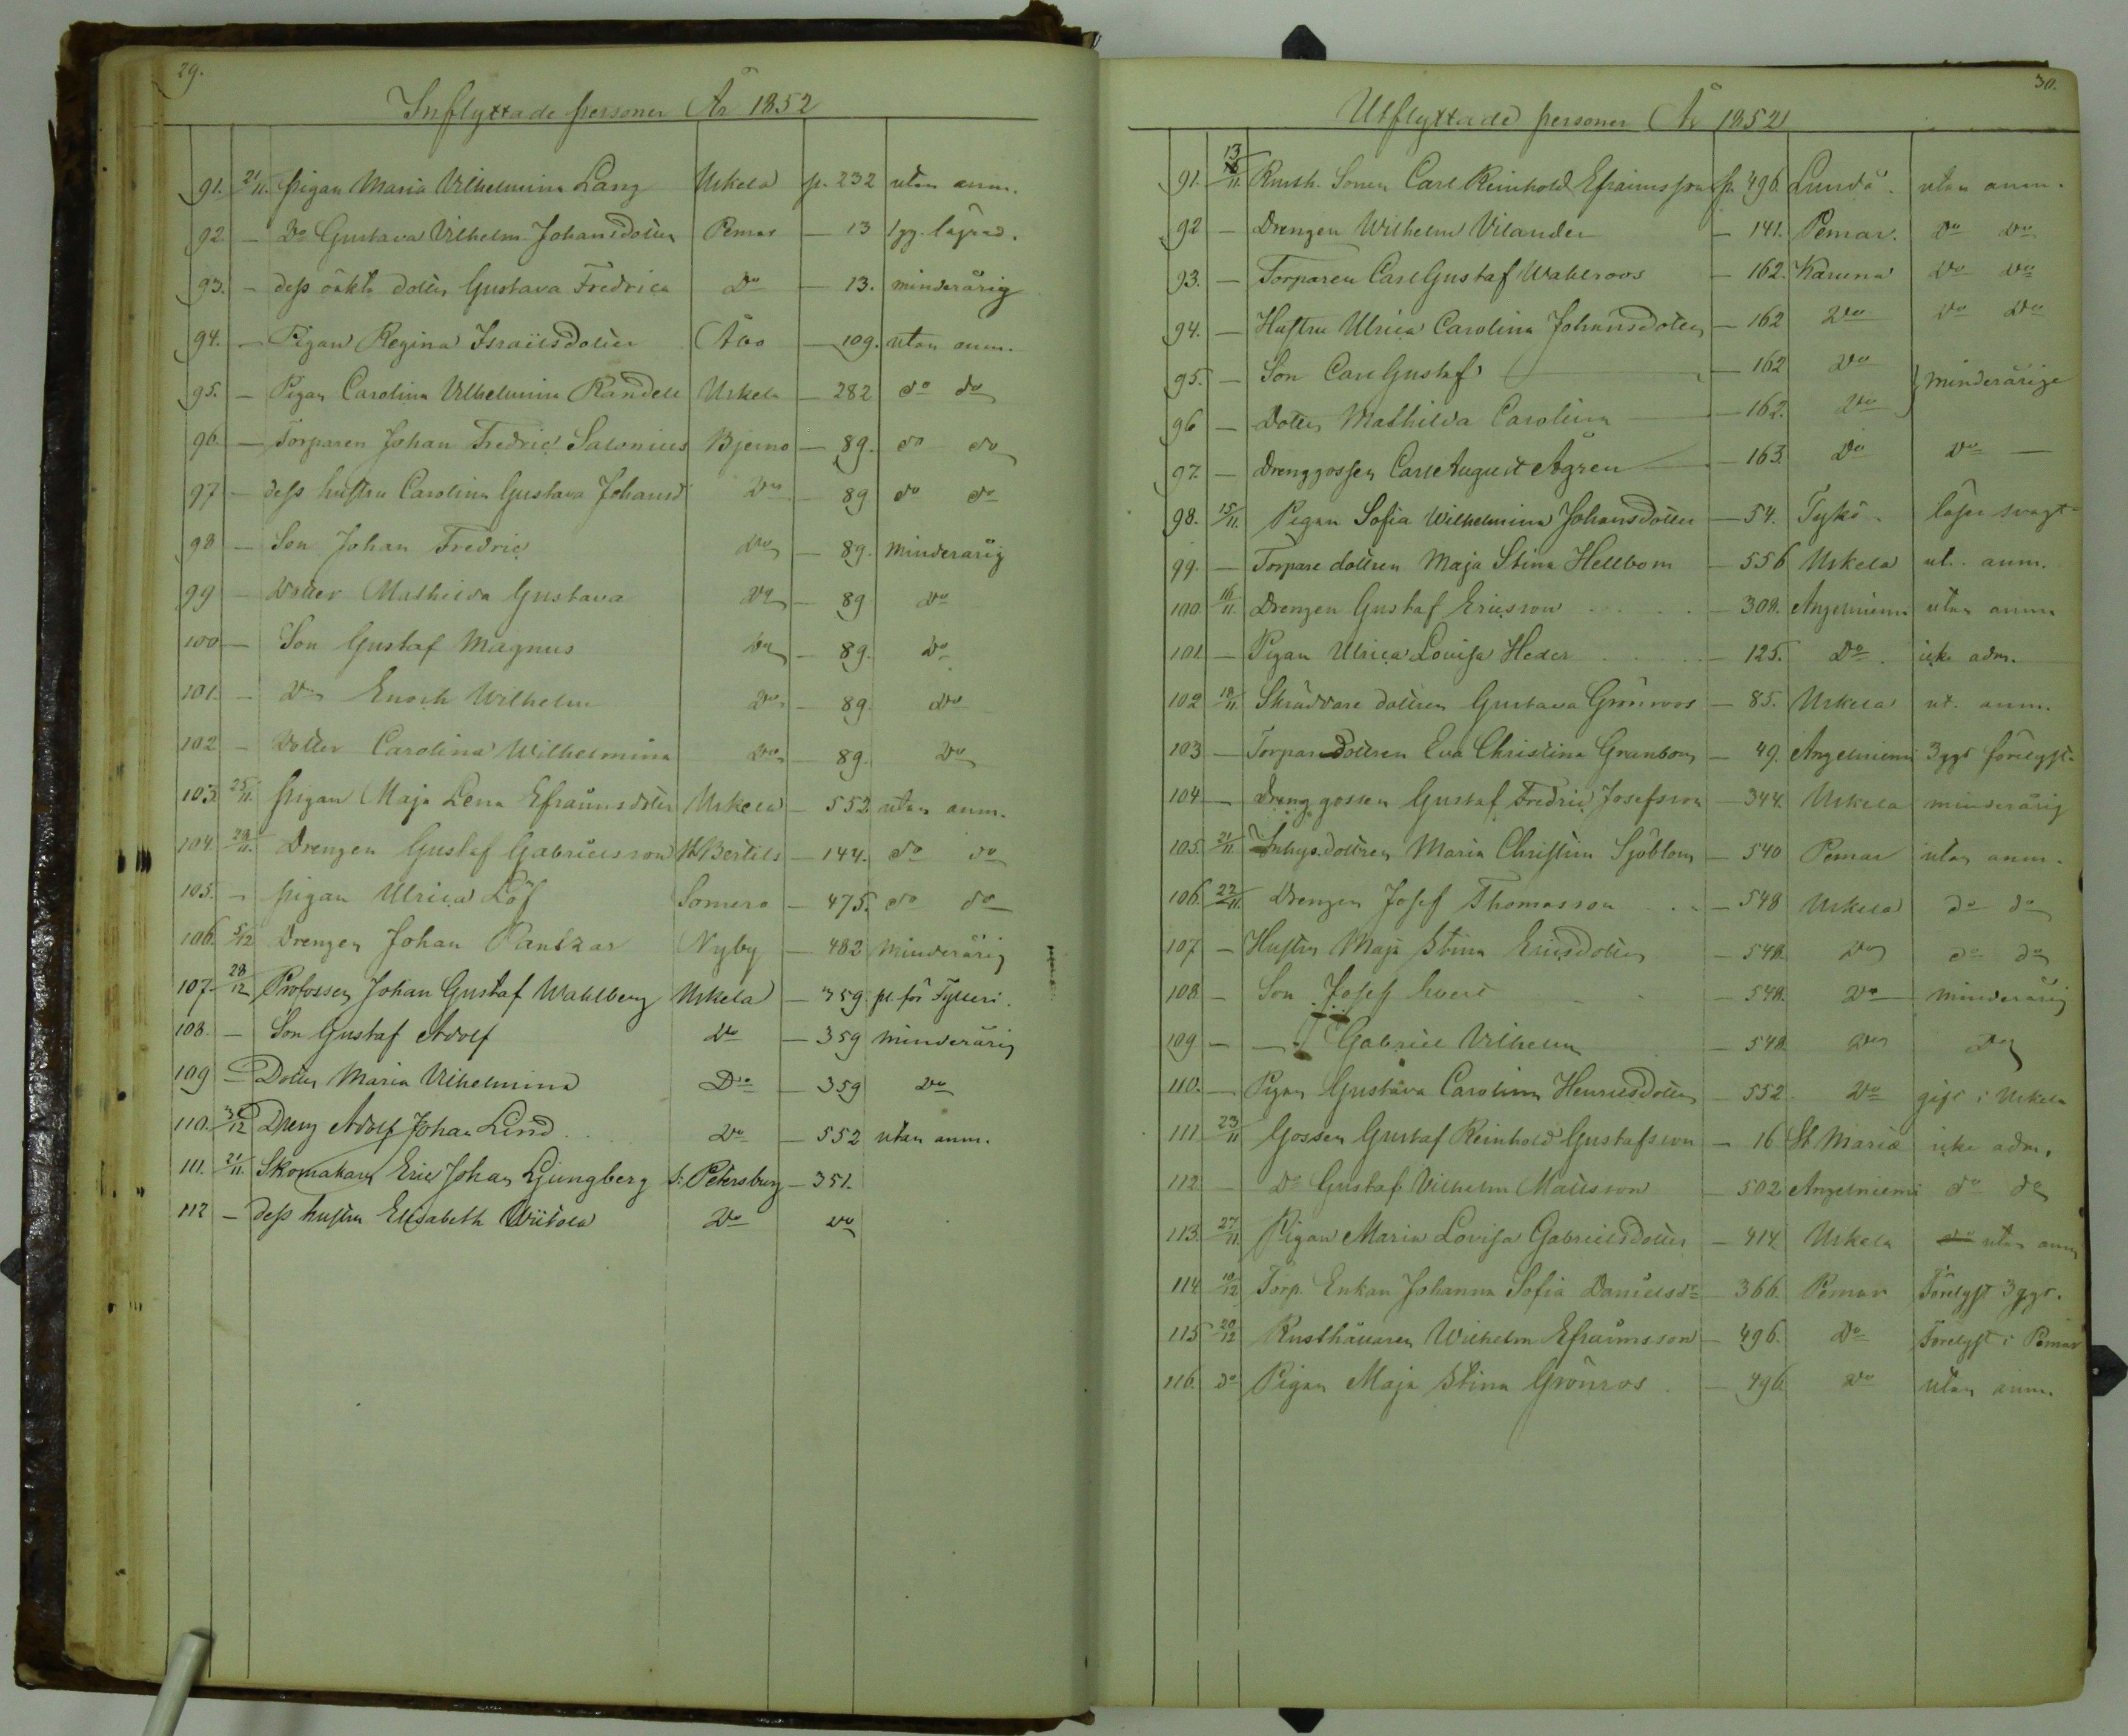 29.
Inflyttade personer År 1852
91. 21/11. pigan Maria Vilhelmina Lang Uskela p. 232 utan anm.
92 — Do Gustava Vilhelm. Johansdotter Pemar — 13 1 gg. lägrad.
93. — dess oäkta dotter Gustava Fredrica Do — 13. minderårig
94. — Pigan Regina Israelsdotter Åbo — 109. utan anm.
95. — Pigan Carolina Vilhelmina Randell Uskela — 282 do do
96. — Torparen Johan Fredric Salonius Bjerno — 89. do do
97 — dess hustru Carolina Gustava Johansd Do — 89 do do
98 — Son Johan Fredric Do — 89. minderårig
99 — Dotter Mathilda Gustava Do — 89 Do
100 — Son Gustaf Magnus Do — 89. Do
101. — Do Enoch Wilhelm Do — 89. Do
102 — Dotter Carolina Wilhelmina Do — 89. Do
103. 25/11. pigan Maja Lena Efraimsdotter Uskela — 552 utan anm.
104. 29/11. Drengen Gustaf Gabrielsson St Bertils — 144. do do
105. — pigan Ulrica Löf Somero — 475. do do
106. 5/12 Drengen Johan Pantzar Nyby — 482 minderårig
107. 28/12 Profossen Johan Gustaf Wahlberg Uskela — 359. pl. för Fylleri.
108. — Son Gustaf Adolf Do — 359 minderårig
109 — Dotter Maria Vilhelmina Do — 359 Do
110. 31/12 Dreng Adolf Johan Lind Do — 552 utan anm.
111. 21/11. Skomakare Eric Johan Ljungberg S: Petersburg — 351.
112 — dess hustru Elisabeth Wiitola Do Do
30.
Utflyttade personer År 1852
91. 13/11. Rusth. Sonen Carl Reinhold Efraimsson p. 496. Lundo. utan anm.
92 — Drengen Wilhelm Vilander — 141. Pemar. Do Do
93. — Torparen Carl Gustaf Wahlroos — 162. Karuna Do Do
94. — Hustru Ulrica Carolina Johansdotter — 162 Do Do Do
95. — Son Carl Gustaf — 162 Do } minderårige
96 — Dotter Mathilda Carolina — 162. Do
97. — Drenggossen Carl August Ågren — 163. Do Do —
98. 15/11. Pigan Sofia Wilhelmina Johansdotter — 54. Tykö. läser svagt
99. — Torpare dottren Maja Stina Hellbom — 556 Uskela ut. anm.
100. 16/11. Drengen Gustaf Ericsson — 308. Angelniemi utan anm.
101. — Pigan Ulrica Lovisa Heder — 125. Do. icke adm.
102 18/11. Skräddare dottren Gustava Grönroos — 85. Uskela ut. anm.
103 — Torpare dottren Eva Christina Granbom — 49. Angelniemi 3 ggr förelyst.
104 — Dreng gossen Gustaf Fredric Josefsson — 344. Uskela minderårig
105. 21/11 Inhys. dottren Maria Christina Sjöblom — 540 Pemar utan anm.
106. 22/11. Drengen Josef Thomasson — 548 Uskela do do
107 — Hustru Maja Stina Ericsdotter — 548. Do do do
108 — Son Josef — 548. Do minderårig
109 — — Gabriel Vilhelm — 548. Do Do
110. — Pigan Gustava Carolina Henricsdotter — 552. Do gift i Uskela
111 23/11 Gossen Gustaf Reinhold Gustafsson — 16 St Mariæ icke adm.
112 — Do Gustaf Vilhelm Mattsson — 502 Angelniemi do do
113. 27/11. Pigan Maria Lovisa Gabrielsdotter — 414. Uskela utan anm
114 10/12 Torp. Enkan Johanna Sofia Danielsdr — 366. Pemar Förelyst 3 ggr.
115 20/12 Rusthållaren Wilhelm Efraimsson — 496. Do Förelyst i Pemar
116. do Pigan Maja Stina Grönros — 496 Do utan anm.